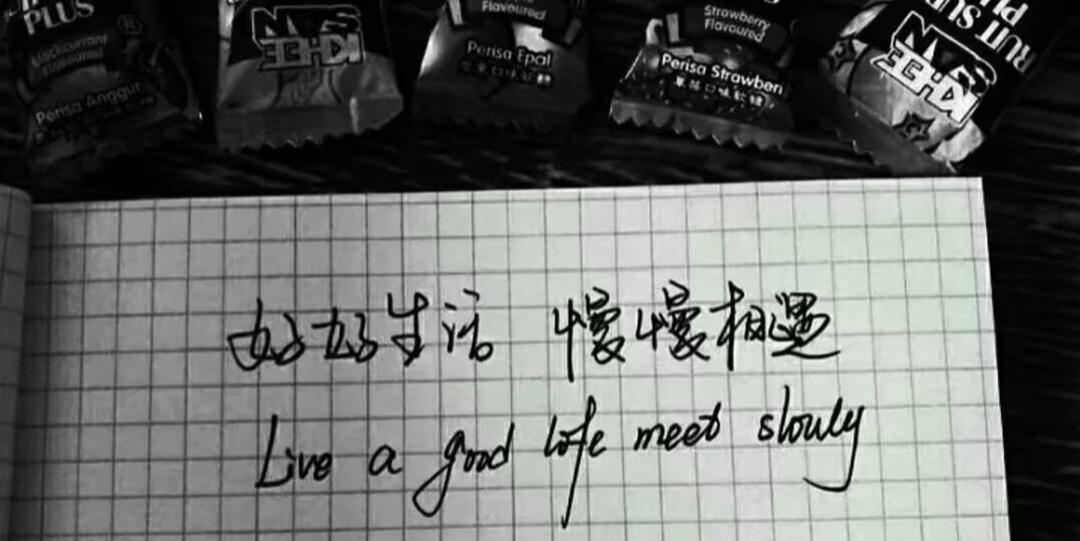 PLUS
Blackcurrant
Flavoured
Perisa Anggur
KHEE
SAN
Flavoured
Perisa Epal
苹果口味软糖
Strawberry
Flavoured
Perisa Strawberi
草莓口味软糖
KHEE
SAN
好好生活 慢慢相遇
Live a good life meet slowly